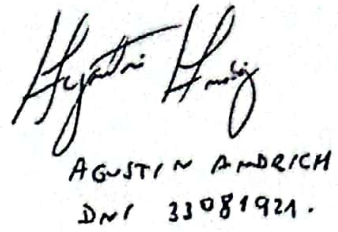 Agustin Andrich
AGUSTIN ANDRICH
DNI 33081921.